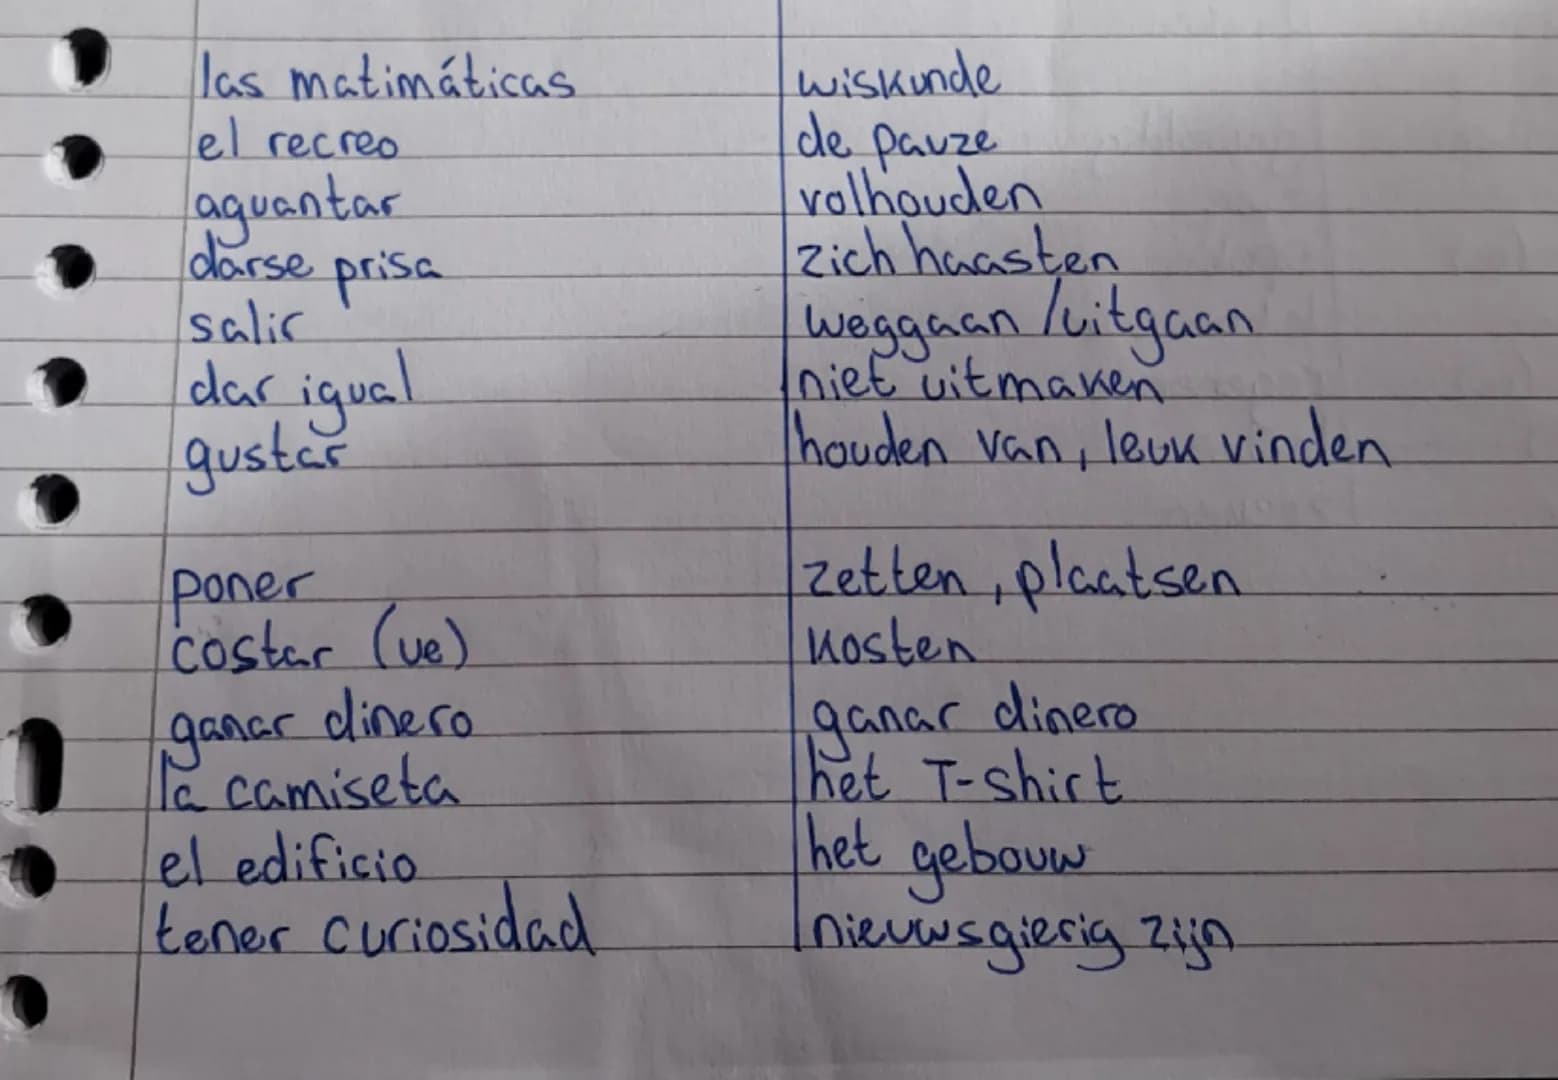 las matimáticas wiskunde
el recreo de pauze
aguantar volhouden
darse prisa zich haasten
salir weggaan /uitgaan
dar igual niet uitmaken
gustar houden van, leuk vinden
poner zetten, plaatsen
costar (ue) kosten
ganar dinero ganar dinero
la camiseta het T-shirt
el edificio het gebouw
tener curiosidad nieuwsgierig zijn